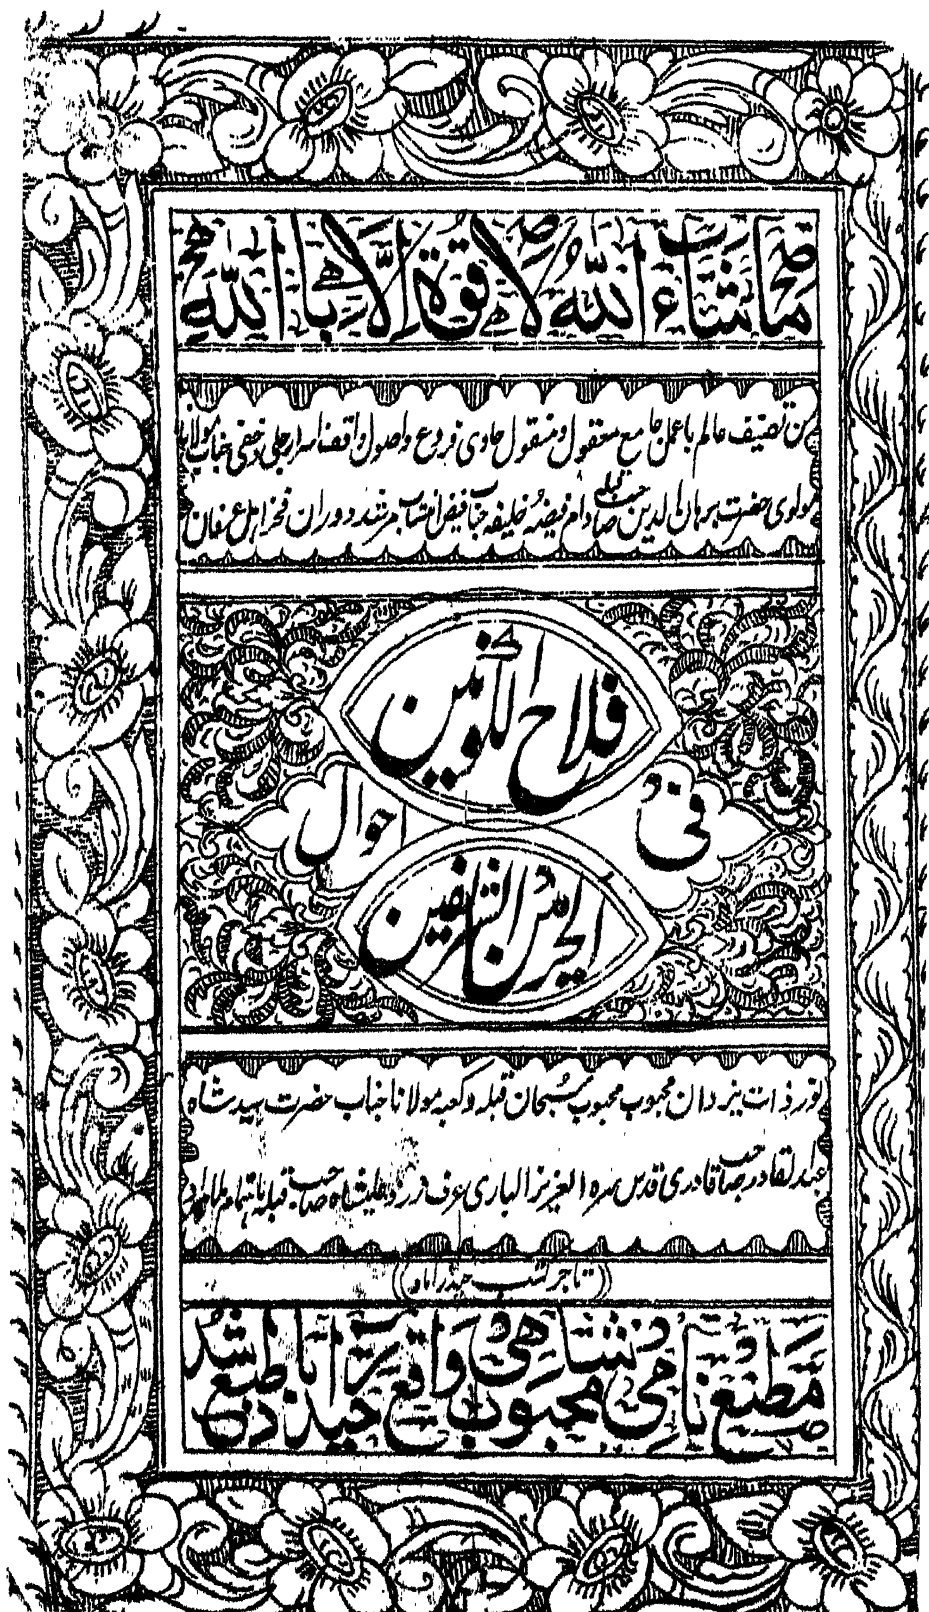 ماشاء الله لا قوة الا بالله
من تصنیف عالم باعمل جامع معقول و منقول حاوی فروع و اصول واقف اسرار جلی و خفی جناب مولانا
مولوی حضرت برهان الدین صاحب قبله دام فیضه خلیفه جناب فیض انتساب مرشد دوران فخر اهل عرفان
فلاح الکونین
فی احوال
الحرمین الشریفین
نور ذات یزدان محبوب محبوب سبحان قبله و کعبه مولانا جناب حضرت سید شاه
عبدالقادر صاحب قادری قدس سره العزیز الباری عرف زرد علیشاه صاحب قبله باهتمام
(تاجر کتب حیدرآباد)
مطبع نامی محبوب شاهی واقع حیدرآباد دکن طبع شد